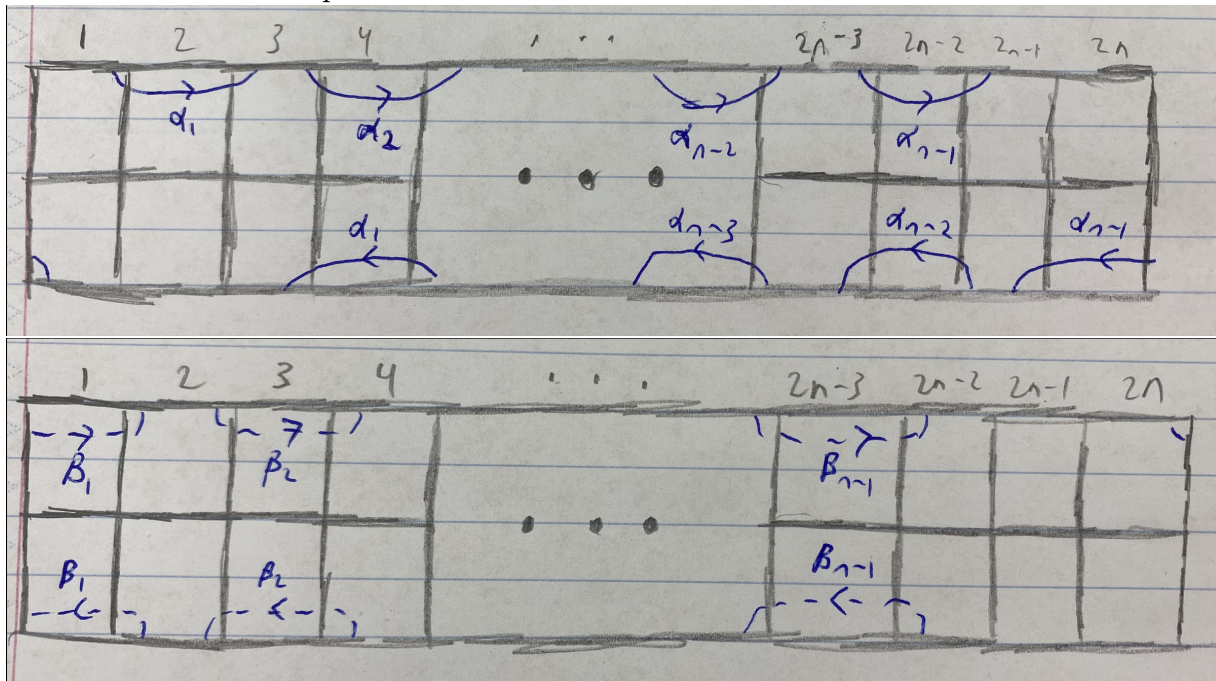 1 2 3 4 . . . 2n-3 2n-2 2n-1 2n
α₁ α₂ αₙ₋₂ αₙ₋₁
α₁ αₙ₋₃ αₙ₋₂ αₙ₋₁
1 2 3 4 . . . 2n-3 2n-2 2n-1 2n
β₁ β₂ βₙ₋₁
β₁ β₂ βₙ₋₁